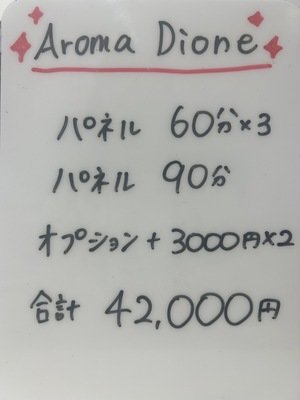 Aroma Dione
パネル 60分×3
パネル 90分
オプション+3000円×2
合計 42,000円